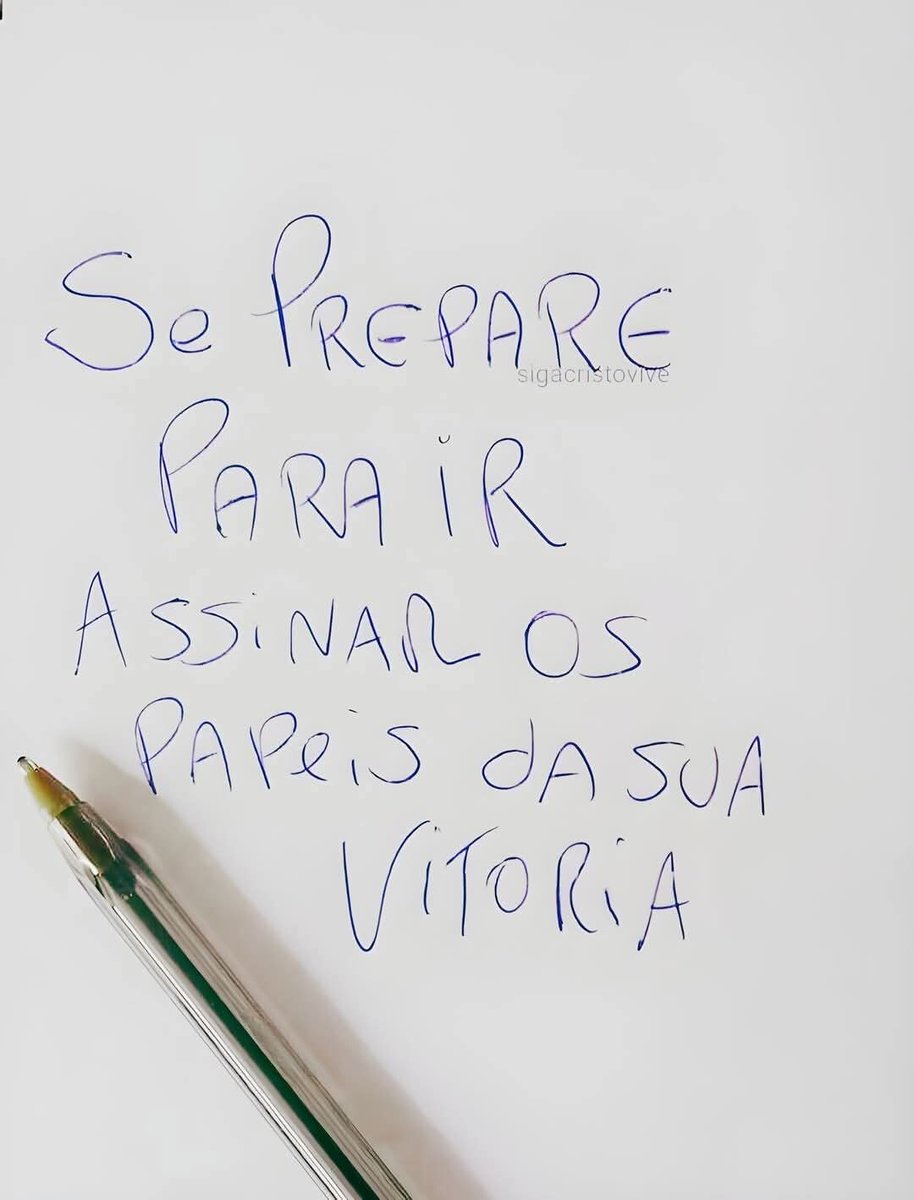 Se PREPARE
sigacristovive
PARA iR
ASSiNAR OS
PAPeis dA SUA
ViTORiA